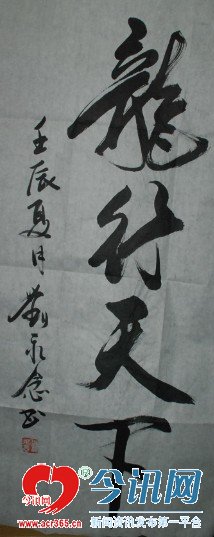 龍行天下
壬辰夏月 劉永念书
今日讯
今讯网
www.acr365.cn
新闻资讯发布第一平台